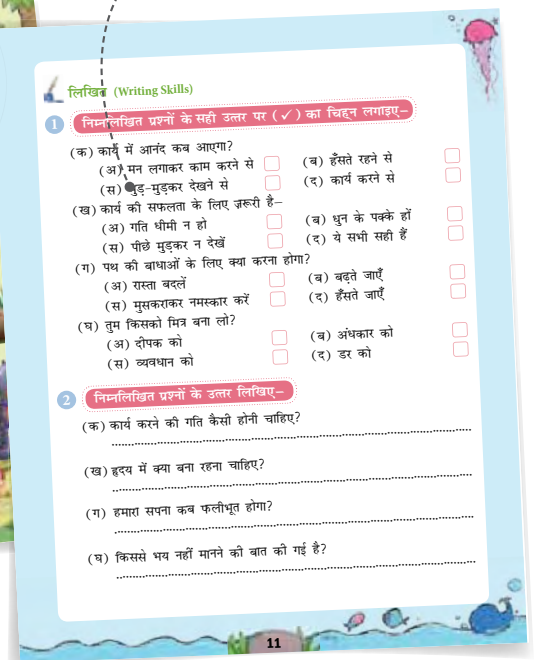 लिखित (Writing Skills)
1 निम्नलिखित प्रश्नों के सही उत्तर पर (✓) का चिह्न लगाइए–
(क) कार्य में आनंद कब आएगा?
(अ) मन लगाकर काम करने से (ब) हँसते रहने से
(स) मुड़-मुड़कर देखने से (द) कार्य करने से
(ख) कार्य की सफलता के लिए ज़रूरी है–
(अ) गति धीमी न हो (ब) धुन के पक्के हों
(स) पीछे मुड़कर न देखें (द) ये सभी सही हैं
(ग) पथ की बाधाओं के लिए क्या करना होगा?
(अ) रास्ता बदलें (ब) बढ़ते जाएँ
(स) मुसकराकर नमस्कार करें (द) हँसते जाएँ
(घ) तुम किसको मित्र बना लो?
(अ) दीपक को (ब) अंधकार को
(स) व्यवधान को (द) डर को
2 निम्नलिखित प्रश्नों के उत्तर लिखिए–
(क) कार्य करने की गति कैसी होनी चाहिए?
(ख) हृदय में क्या बना रहना चाहिए?
(ग) हमारा सपना कब फलीभूत होगा?
(घ) किससे भय नहीं मानने की बात की गई है?
11